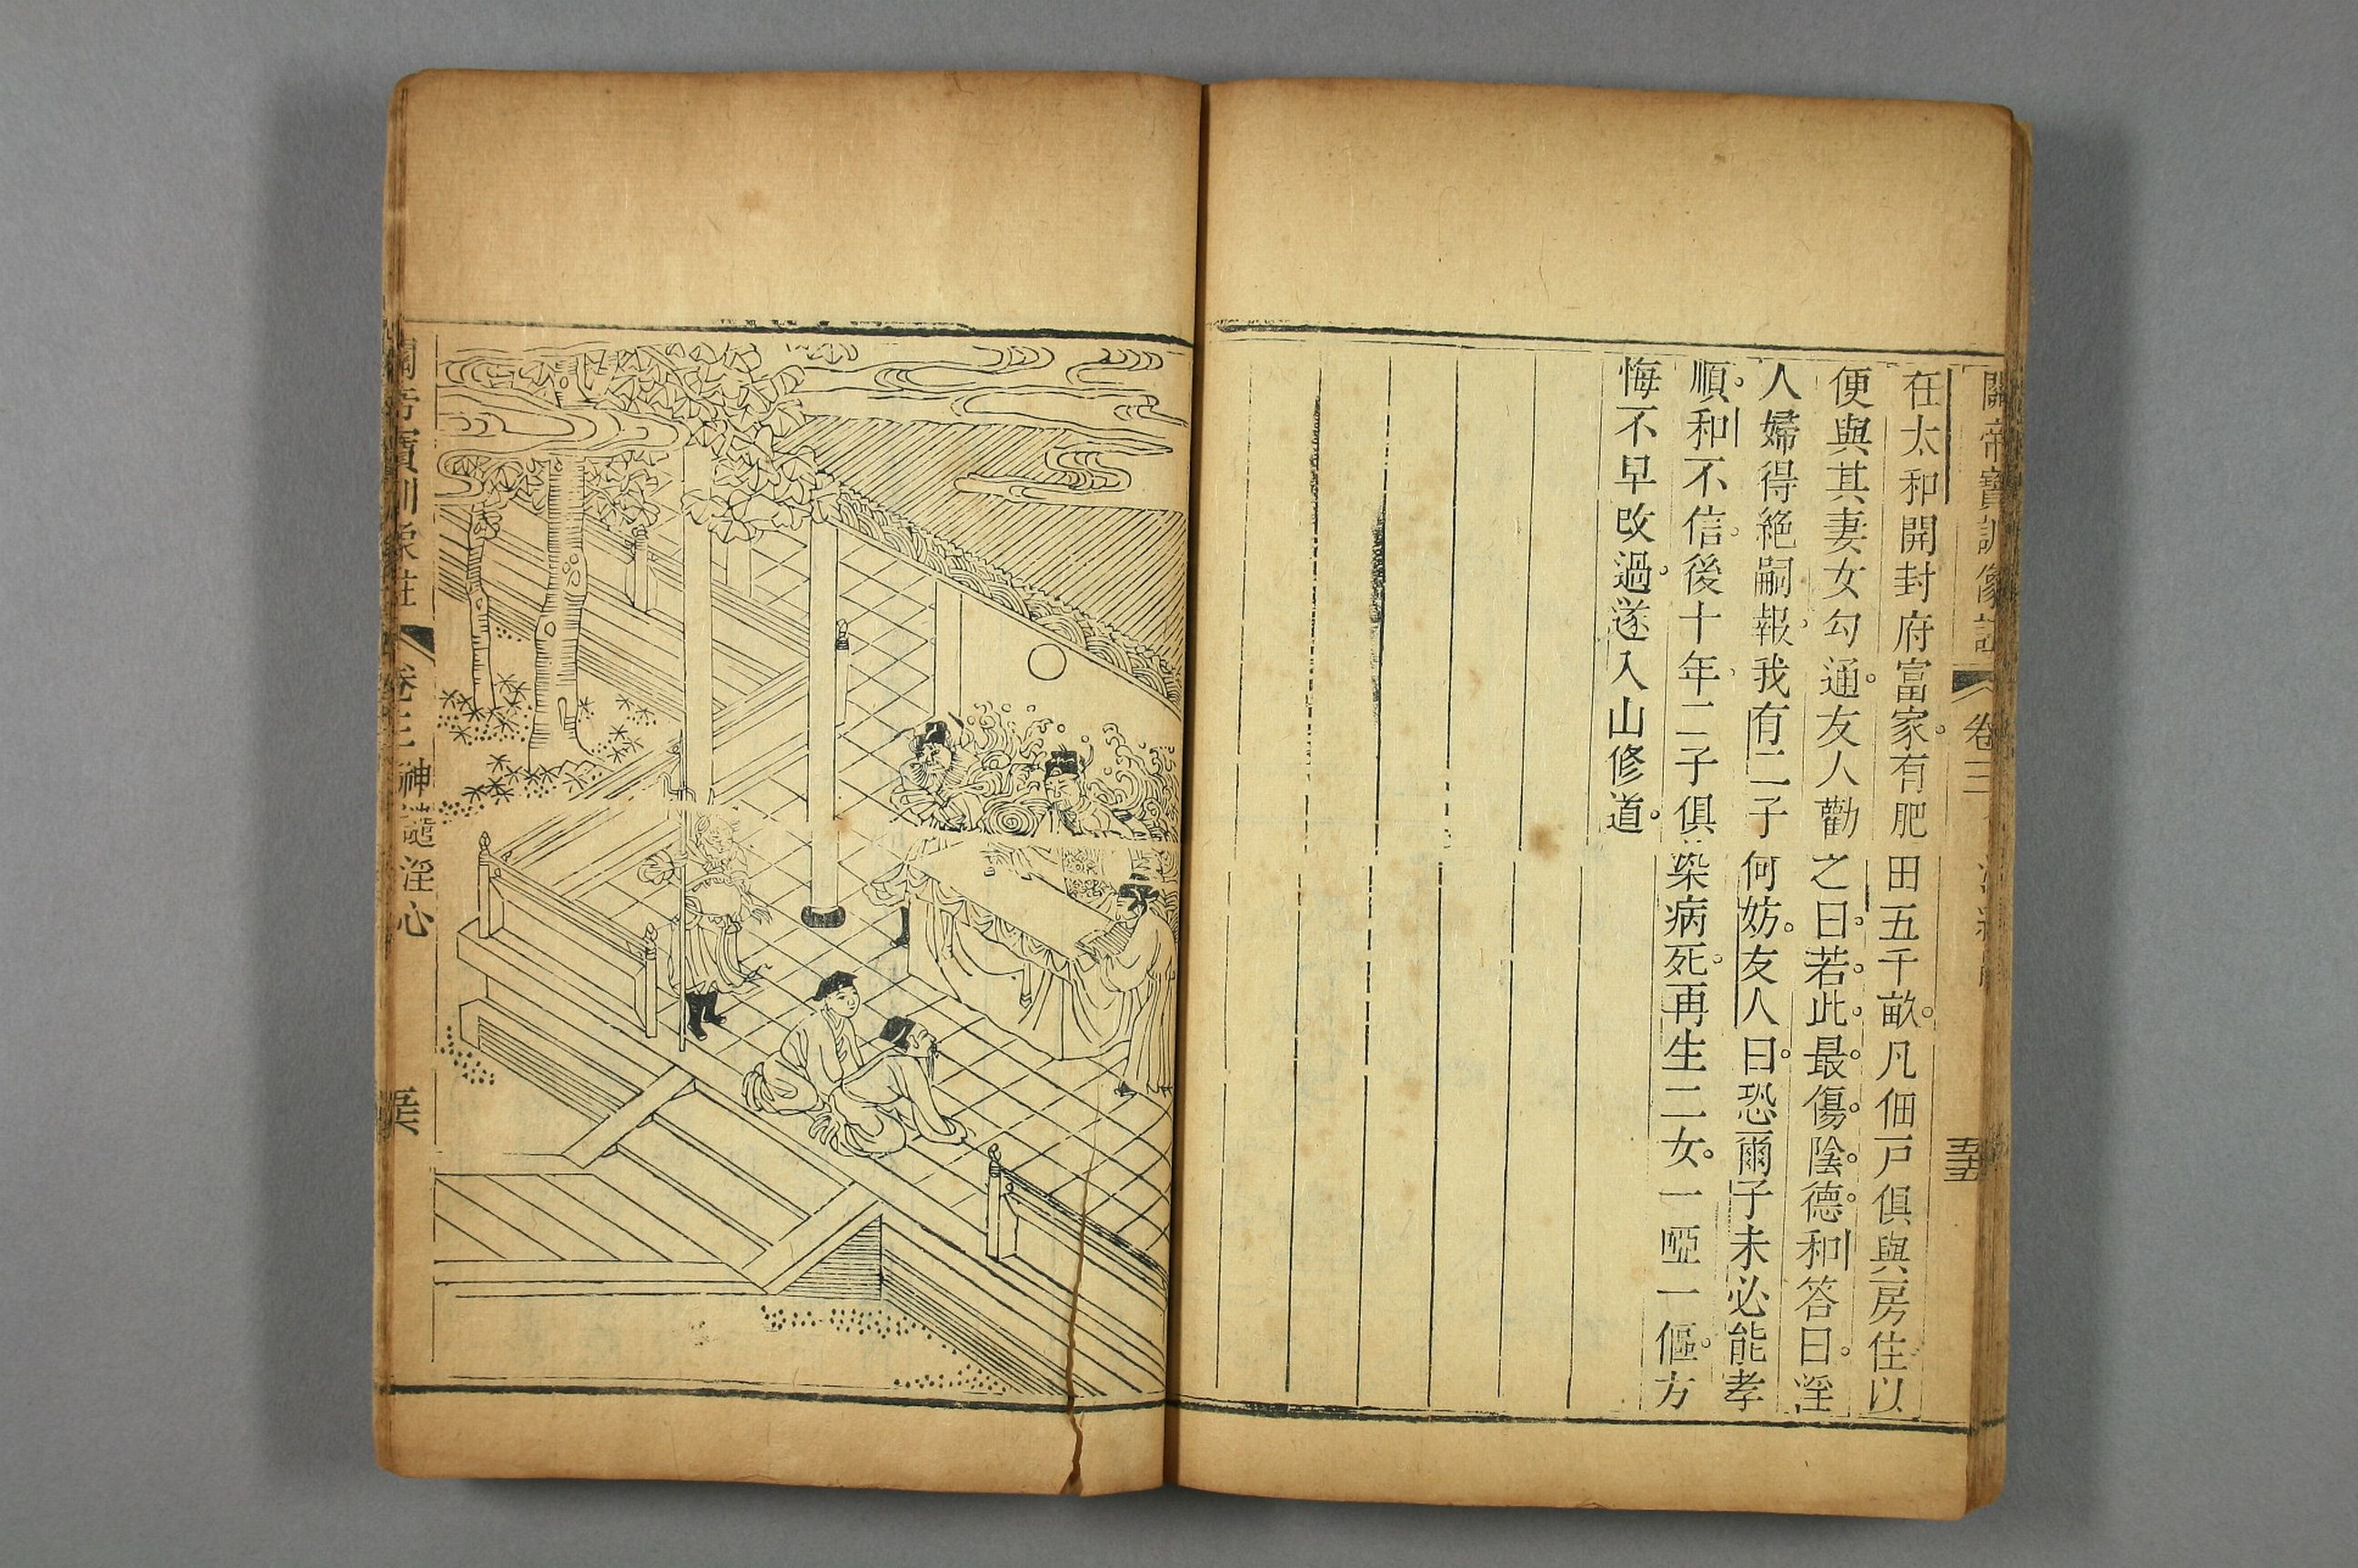 關帝寶訓像註 卷三 五十五
在太和開封府富家有肥田五千畝凡佃戸俱與房住以
便與其妻女勾通友人勸之曰若此最傷陰德和答曰淫
人婦得絶嗣報我有二子何妨友人曰恐爾子未必能孝
順和不信後十年二子俱染病死再生二女一啞一傴方
悔不早改過遂入山修道
關帝寶訓像註 卷三 神 淫心